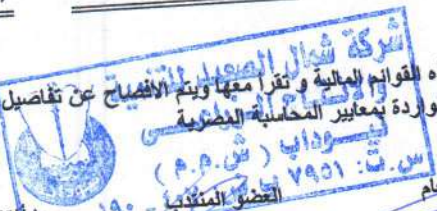 ه القوائم المالية و تقرأ معها ويتم الأفصاح عن تفاصيل
واردة بمعايير المحاسبة المصرية
شركة شمال الصعيد للتنمية
نيوداب (ش.م.م)
س.ت: ٧٩٥١
العضو المنتدب
ام